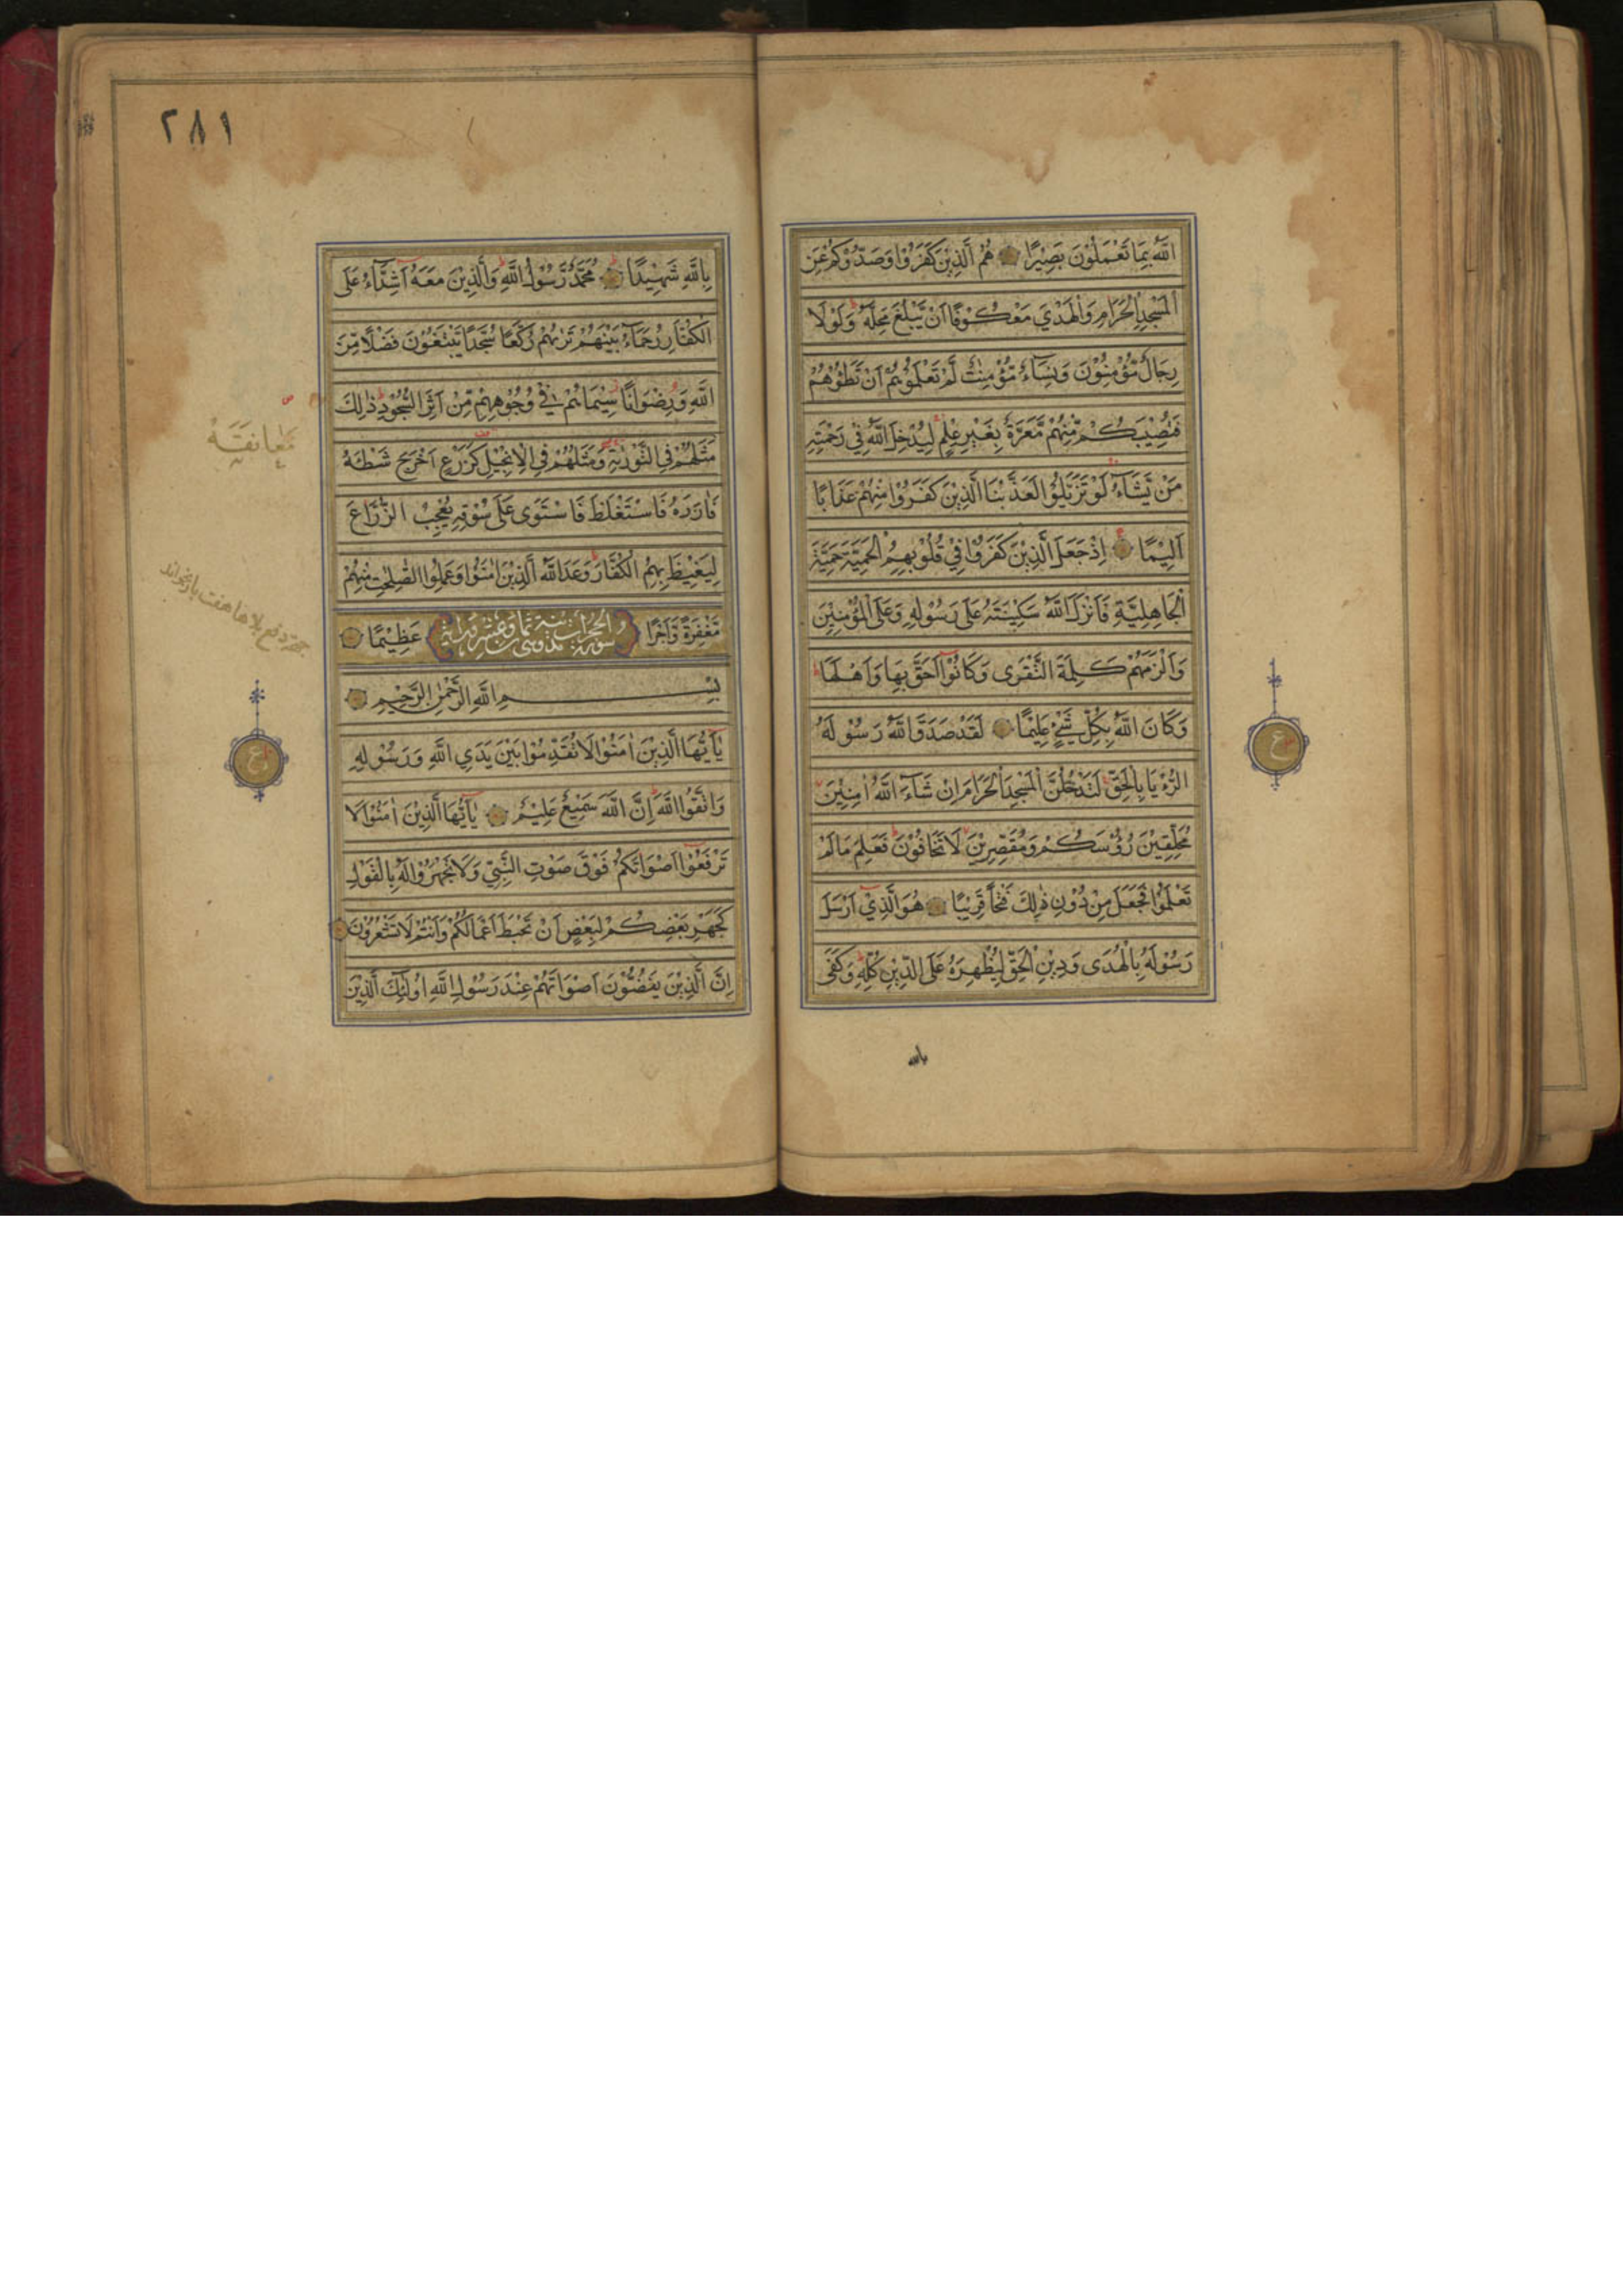 اللّٰهُ بِمَا تَعْمَلُوْنَ بَصِيْرًا هُمُ الَّذِيْنَ كَفَرُوْا وَصَدُّوْكُمْ عَنِ
الْمَسْجِدِ الْحَرَامِ وَالْهَدْيَ مَعْكُوْفًا اَنْ يَّبْلُغَ مَحِلَّهٗ وَلَوْلَا
رِجَالٌ مُّؤْمِنُوْنَ وَنِسَاءٌ مُّؤْمِنٰتٌ لَّمْ تَعْلَمُوْهُمْ اَنْ تَطَؤُهُمْ
فَتُصِيْبَكُمْ مِّنْهُمْ مَّعَرَّةٌ بِغَيْرِ عِلْمٍ لِيُدْخِلَ اللّٰهُ فِيْ رَحْمَتِهٖ
مَنْ يَّشَآءُ لَوْ تَزَيَّلُوْا لَعَذَّبْنَا الَّذِيْنَ كَفَرُوْا مِنْهُمْ عَذَابًا
اَلِيْمًا اِذْ جَعَلَ الَّذِيْنَ كَفَرُوْا فِيْ قُلُوْبِهِمُ الْحَمِيَّةَ حَمِيَّةَ
الْجَاهِلِيَّةِ فَاَنْزَلَ اللّٰهُ سَكِيْنَتَهٗ عَلٰى رَسُوْلِهٖ وَعَلَى الْمُؤْمِنِيْنَ
وَاَلْزَمَهُمْ كَلِمَةَ التَّقْوٰى وَكَانُوْا اَحَقَّ بِهَا وَاَهْلَهَا
وَكَانَ اللّٰهُ بِكُلِّ شَيْءٍ عَلِيْمًا لَقَدْ صَدَقَ اللّٰهُ رَسُوْلَهُ
الرُّءْيَا بِالْحَقِّ لَتَدْخُلُنَّ الْمَسْجِدَ الْحَرَامَ اِنْ شَآءَ اللّٰهُ اٰمِنِيْنَ
مُحَلِّقِيْنَ رُؤُسَكُمْ وَمُقَصِّرِيْنَ لَا تَخَافُوْنَ فَعَلِمَ مَا لَمْ
تَعْلَمُوْا فَجَعَلَ مِنْ دُوْنِ ذٰلِكَ فَتْحًا قَرِيْبًا هُوَ الَّذِيْ اَرْسَلَ
رَسُوْلَهٗ بِالْهُدٰى وَدِيْنِ الْحَقِّ لِيُظْهِرَهٗ عَلَى الدِّيْنِ كُلِّهٖ وَكَفٰى
بالله
ع
٢٨١
بِاللّٰهِ شَهِيْدًا مُحَمَّدٌ رَّسُوْلُ اللّٰهِ وَالَّذِيْنَ مَعَهٗ اَشِدَّآءُ عَلَى
الْكُفَّارِ رُحَمَآءُ بَيْنَهُمْ تَرٰىهُمْ رُكَّعًا سُجَّدًا يَّبْتَغُوْنَ فَضْلًا مِّنَ
اللّٰهِ وَرِضْوَانًا سِيْمَاهُمْ فِيْ وُجُوْهِهِمْ مِّنْ اَثَرِ السُّجُوْدِ ذٰلِكَ
مَثَلُهُمْ فِي التَّوْرٰىةِ وَمَثَلُهُمْ فِي الْاِنْجِيْلِ كَزَرْعٍ اَخْرَجَ شَطْـَٔهٗ
فَاٰزَرَهٗ فَاسْتَغْلَظَ فَاسْتَوٰى عَلٰى سُوْقِهٖ يُعْجِبُ الزُّرَّاعَ
لِيَغِيْظَ بِهِمُ الْكُفَّارَ وَعَدَ اللّٰهُ الَّذِيْنَ اٰمَنُوْا وَعَمِلُوا الصّٰلِحٰتِ مِنْهُمْ
مَّغْفِرَةً وَّاَجْرًا عَظِيْمًا
سورة الحجرات
بِسْمِ اللّٰهِ الرَّحْمٰنِ الرَّحِيْمِ
يٰٓاَيُّهَا الَّذِيْنَ اٰمَنُوْا لَا تُقَدِّمُوْا بَيْنَ يَدَيِ اللّٰهِ وَرَسُوْلِهٖ
وَاتَّقُوا اللّٰهَ اِنَّ اللّٰهَ سَمِيْعٌ عَلِيْمٌ يٰٓاَيُّهَا الَّذِيْنَ اٰمَنُوْا لَا
تَرْفَعُوْا اَصْوَاتَكُمْ فَوْقَ صَوْتِ النَّبِيِّ وَلَا تَجْهَرُوْا لَهٗ بِالْقَوْلِ
كَجَهْرِ بَعْضِكُمْ لِبَعْضٍ اَنْ تَحْبَطَ اَعْمَالُكُمْ وَاَنْتُمْ لَا تَشْعُرُوْنَ
اِنَّ الَّذِيْنَ يَغُضُّوْنَ اَصْوَاتَهُمْ عِنْدَ رَسُوْلِ اللّٰهِ اُولٰٓئِكَ الَّذِيْنَ
مُعَانَقَة
دفع بلاها هفت بار بخواند
ع